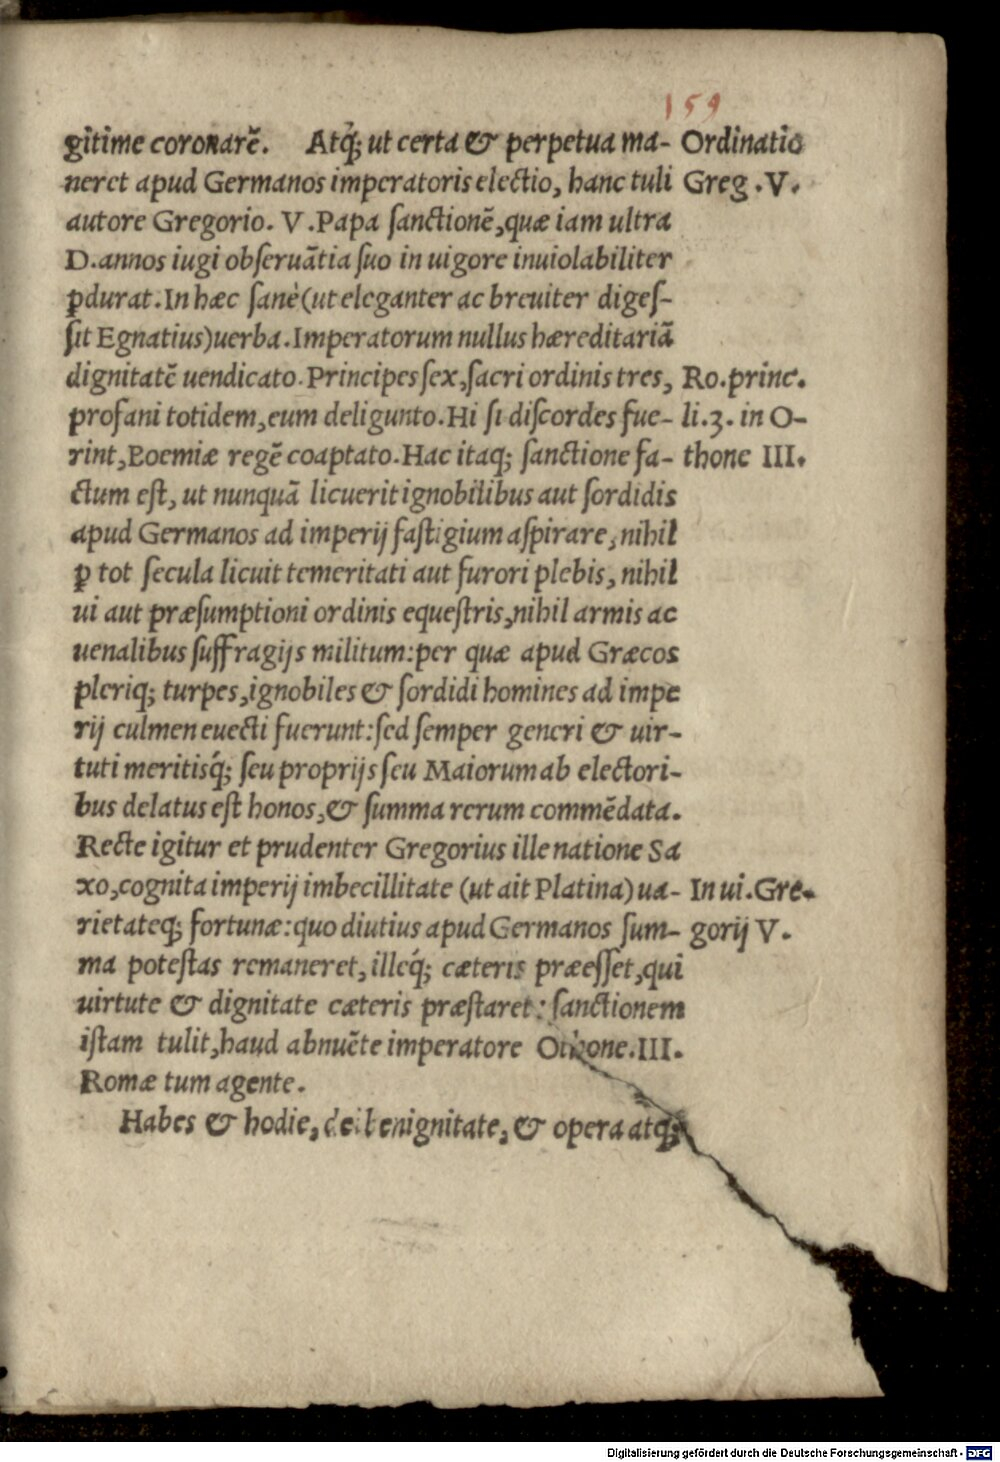 159
gitime coronarē. Atq́; ut certa & perpetua ma- Ordinatio
neret apud Germanos imperatoris electio, hanc tuli Greg.V.
autore Gregorio. V. Papa ſanctionē, quæ iam ultra
D. annos iugi obſeruātia ſuo in uigore inuiolabiliter
ꝑdurat. In hæc ſanè (ut eleganter ac breuiter digeſ-
ſit Egnatius) uerba. Imperatorum nullus hæreditariā
dignitatē uendicato. Principes ſex, ſacri ordinis tres, Ro.princ.
profani totidem, eum deligunto. Hi ſi diſcordes fue- li.3. in O-
rint, Boemiæ regē coaptato. Hac itaq; ſanctione fa- thone III.
ctum eſt, ut nunquā licuerit ignobilibus aut ſordidis
apud Germanos ad imperij faſtigium aſpirare, nihil
ꝑ tot ſecula licuit temeritati aut furori plebis, nihil
ui aut præſumptioni ordinis equeſtris, nihil armis ac
uenalibus ſuffragijs militum: per quæ apud Græcos
pleriq; turpes, ignobiles & ſordidi homines ad impe
rij culmen euecti fuerunt: ſed ſemper generi & uir-
tuti meritisq́; ſeu proprijs ſeu Maiorum ab electori-
bus delatus eſt honos, & ſumma rerum commēdata.
Recte igitur et prudenter Gregorius ille natione Sa
xo, cognita imperij imbecillitate (ut ait Platina) ua- In ui.Gre-
rietateq; fortunæ: quo diutius apud Germanos ſum- gorij V.
ma poteſtas remaneret, illeq́; cæteris præeſſet, qui
uirtute & dignitate cæteris præſtaret: ſanctionem
iſtam tulit, haud abnuēte imperatore Othone. III.
Romæ tum agente.
Habes & hodie, dei benignitate, & opera atq;
Digitalisierung gefördert durch die Deutsche Forschungsgemeinschaft - DFG